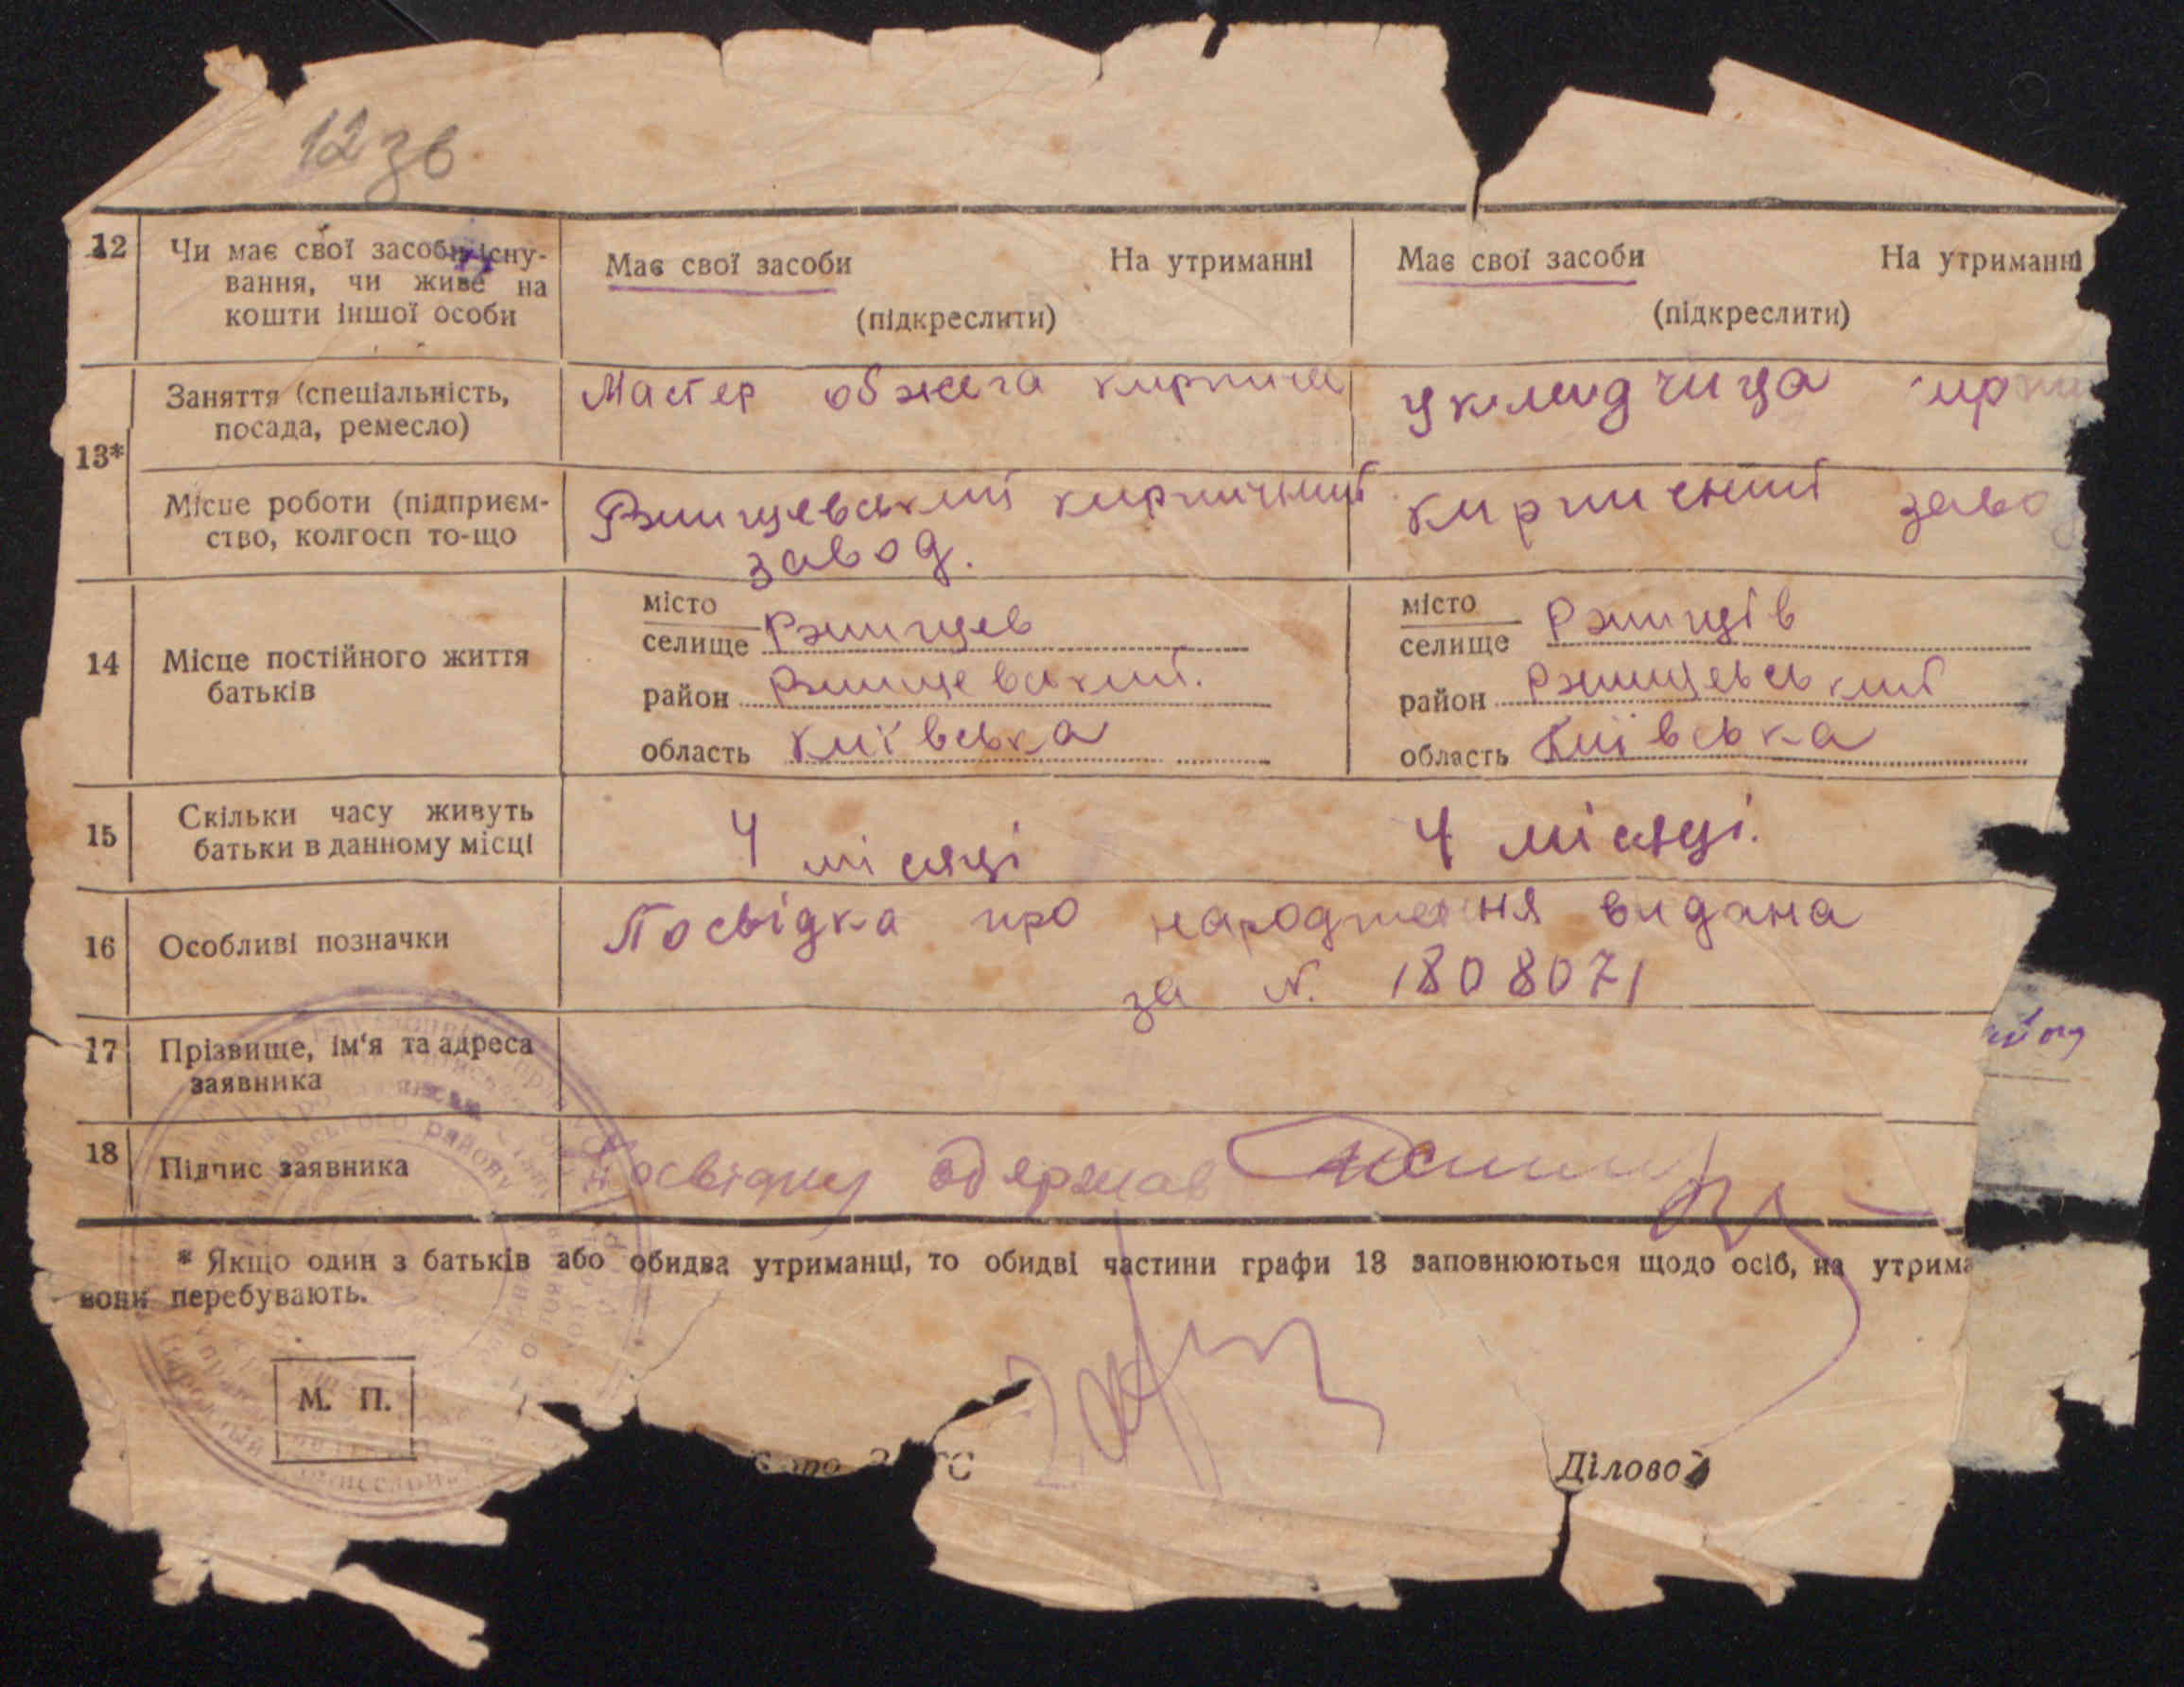 12 зв
12 Чи має свої засоби існу- Має свої засоби На утриманні Має свої засоби На утриманні
вання, чи живе на
кошти іншої особи (підкреслити) (підкреслити)
Заняття (спеціальність, Мастер обжега кирпича укладчица
посада, ремесло)
13*
Місце роботи (підприєм- Ржищевський кирпичний кирпичний заво
ство, колгосп то-що завод.
місто місто
селище Ржищев селище Ржищів
14 Місце постійного життя
батьків район Ржищевський. район Ржищевський
область Київська область Київська
15 Скільки часу живуть
батьки в данному місці 4 місяці 4 місяці.
16 Особливі позначки Посвідка про народження видана
за N. 1808071
17 Прізвище, ім'я та адреса
заявника
18 Підпис заявника Посвідку одержав
* Якщо один з батьків або обидва утриманці, то обидві частини графи 13 заповнюються щодо осіб, на утрима
вони перебувають.
М. П.
Ділово